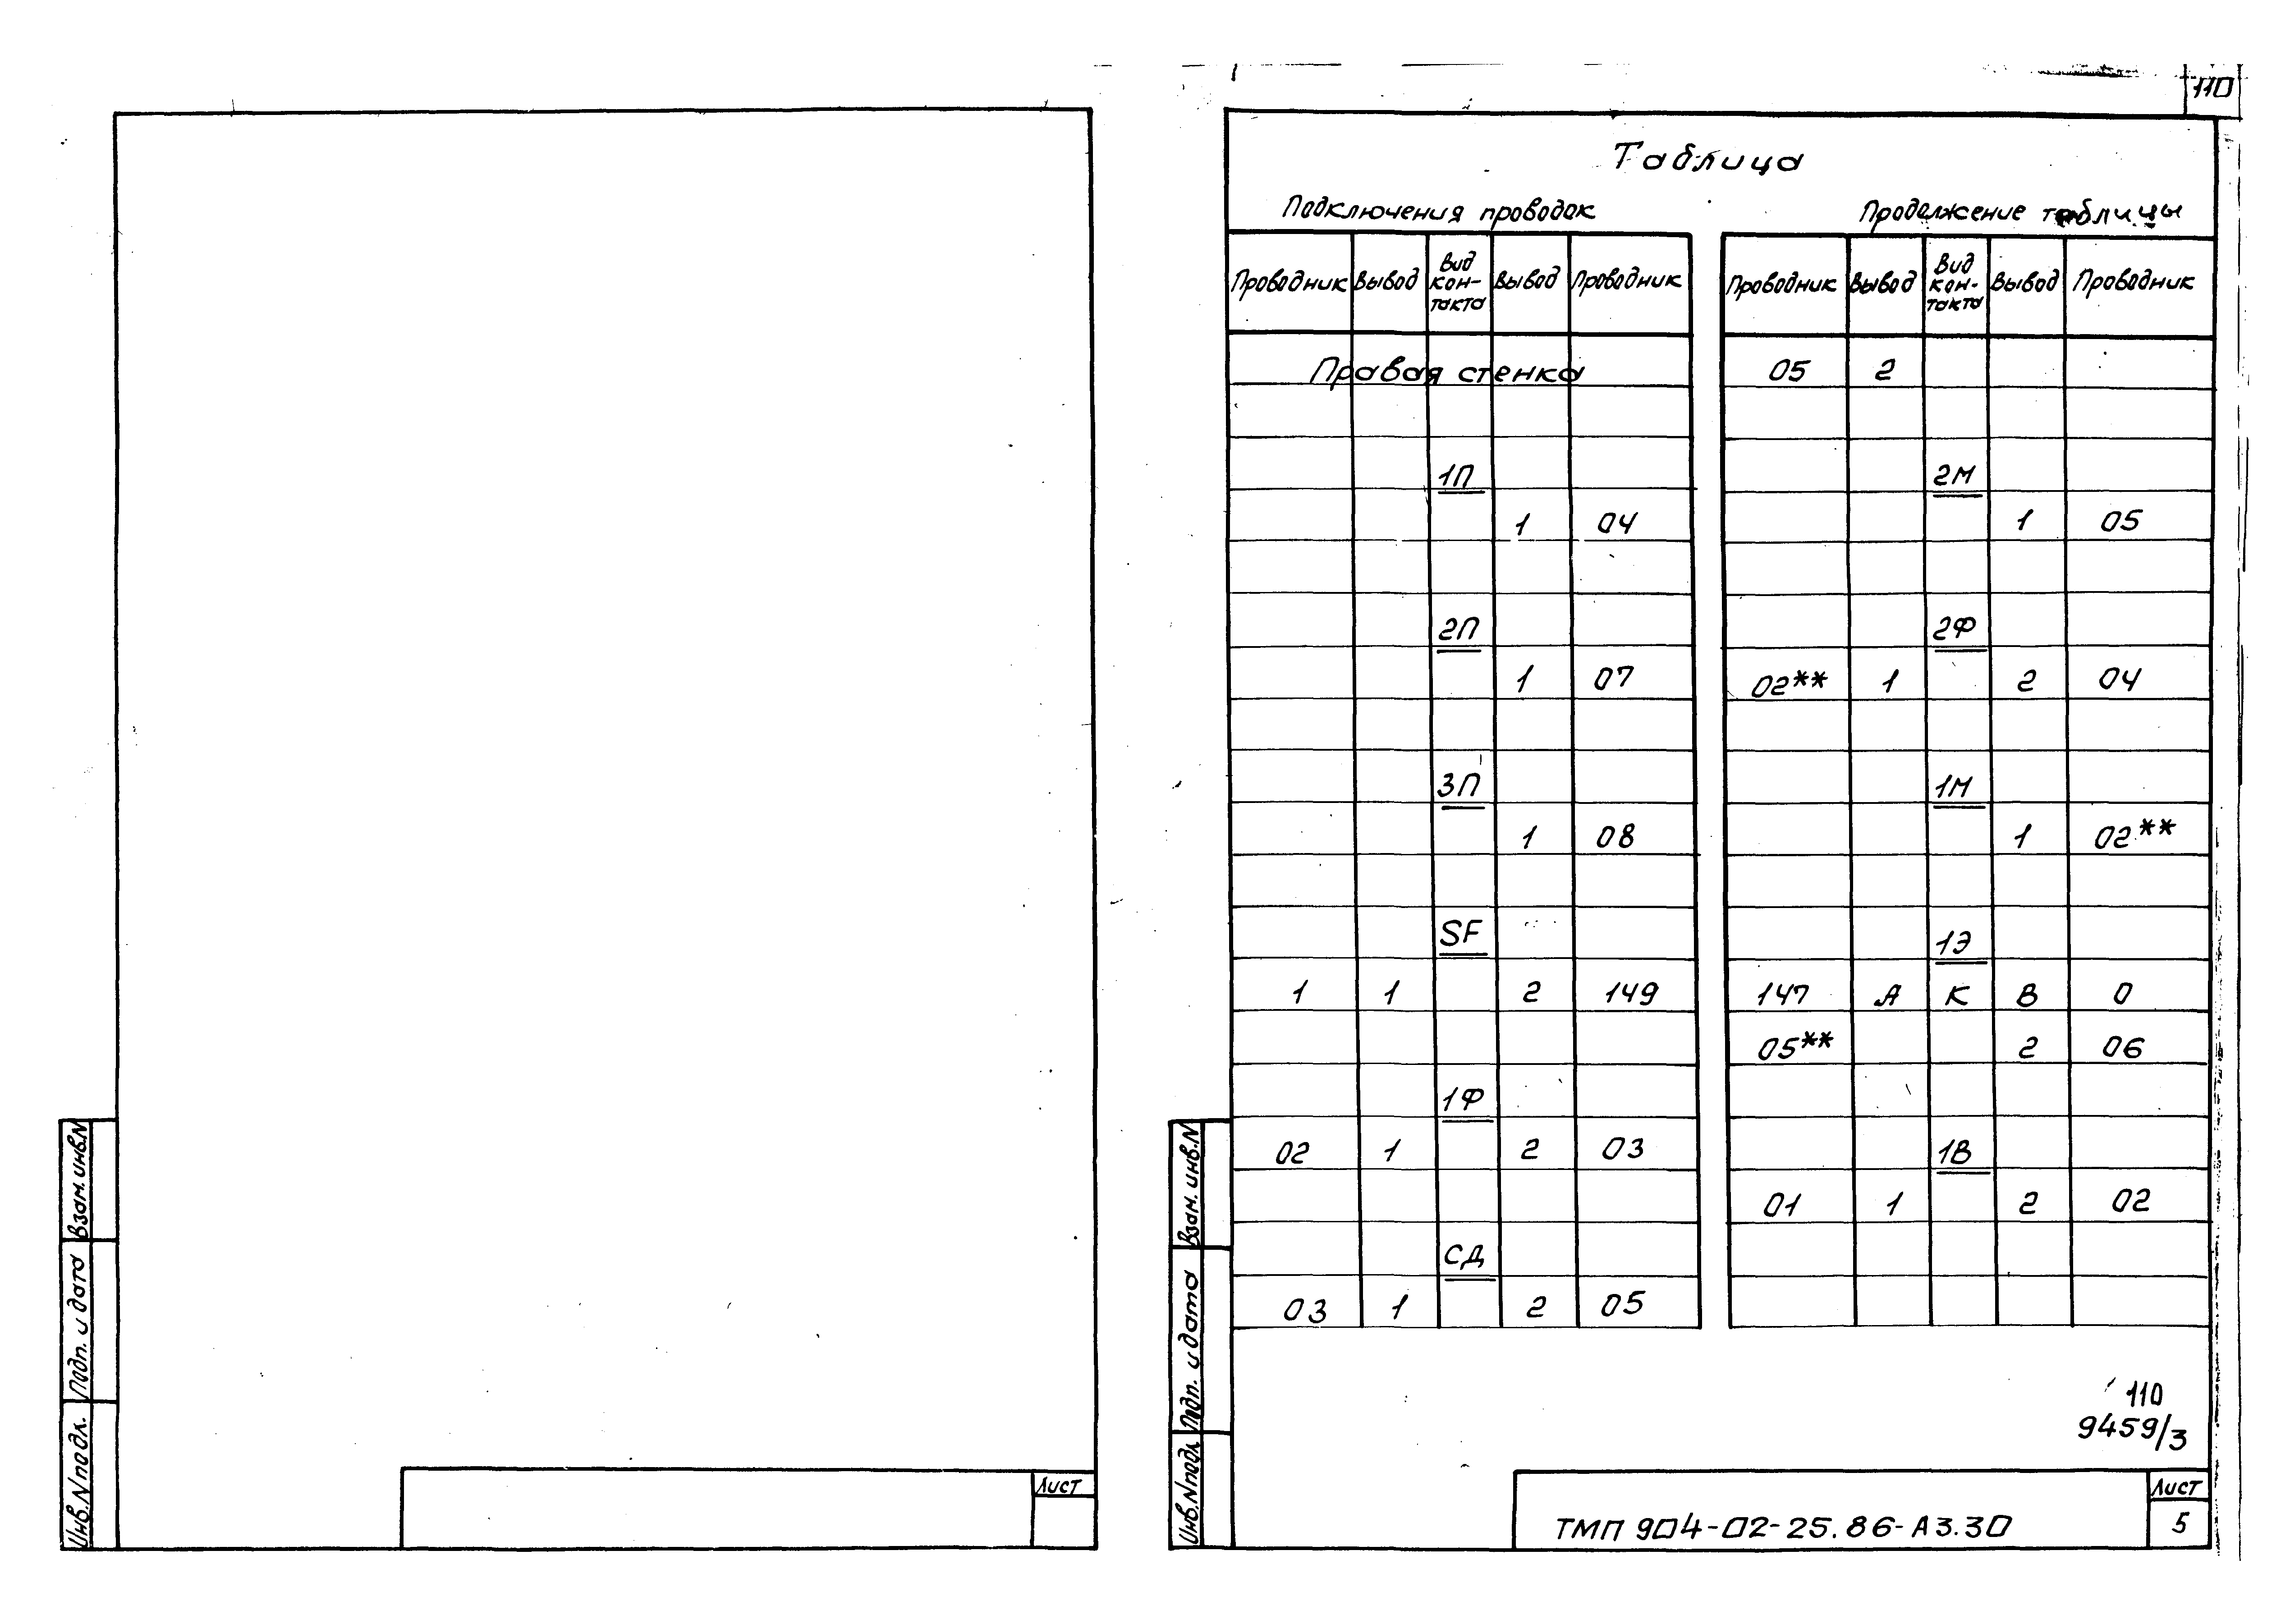 110
Таблица
Подключения проводок
Проводник Вывод Вид кон-такта Вывод Проводник
Правая стенка
1П
1 04
2П
1 07
3П
1 08
SF
1 1 2 149
1Ф
02 1 2 03
СД
03 1 2 05
Продолжение таблицы
Проводник Вывод Вид кон-такта Вывод Проводник
05 2
2М
1 05
2Ф
02** 1 2 04
1М
1 02**
1Э
147 А К В 0
05** 2 06
1В
01 1 2 02
110
9459/3
ТМП 904-02-25.86-А3.30
Лист
5
Взам. инв.N
Подп. и дата
Инв.N подл.
Лист
Взам. инв.N
Подп. и дата
Инв.N подл.